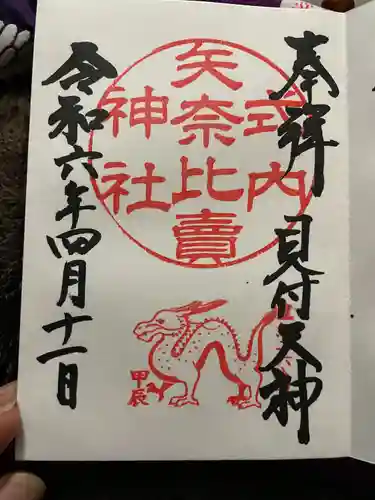 奉拝 見付天神
式内
矢奈比賣
神社
甲辰
令和六年四月十一日